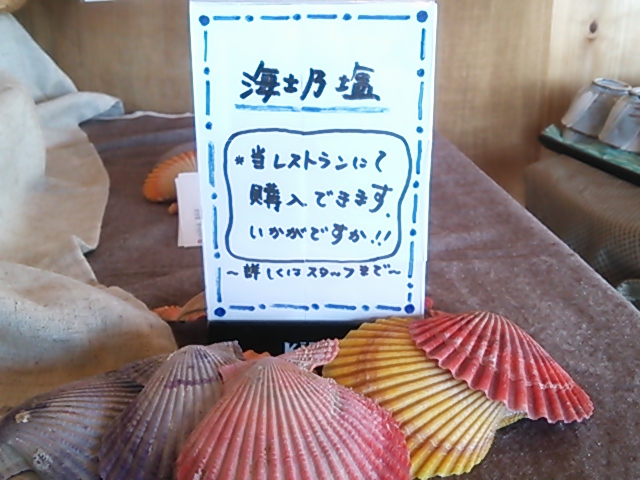 海士乃塩
*当レストランにて
購入できます。
いかがですか!!
～詳しくはスタッフまで～